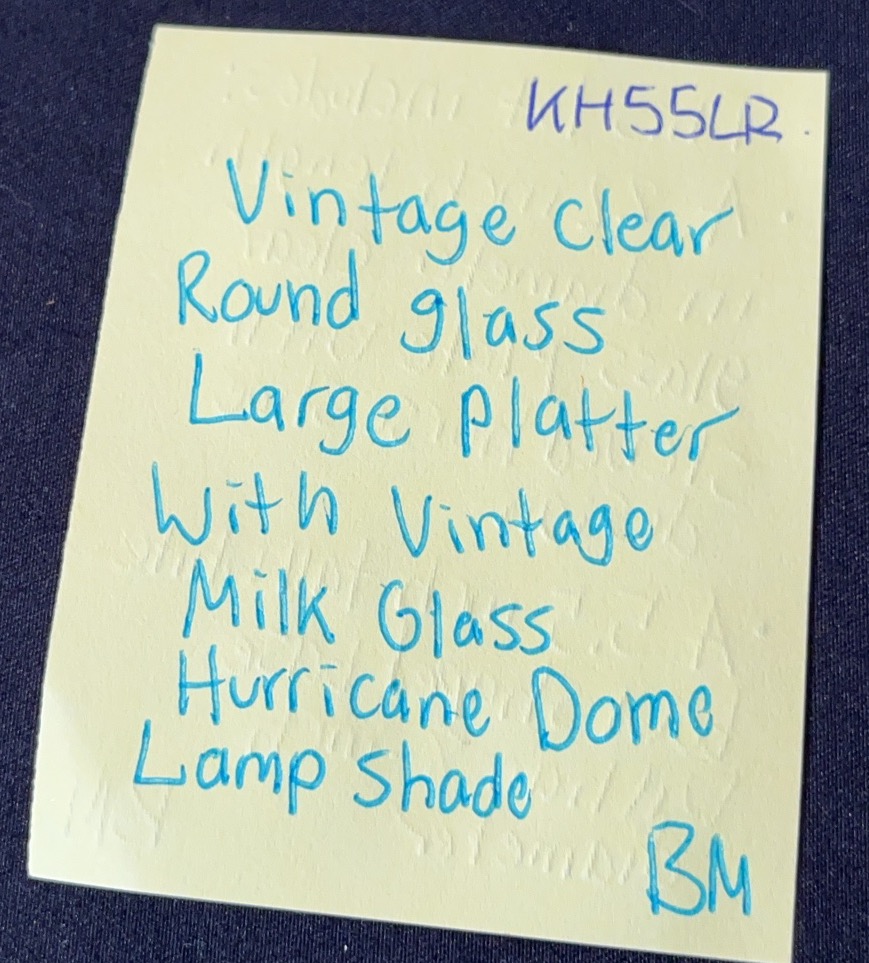 KH55LR.
Vintage Clear
Round glass
Large Platter
With Vintage
Milk Glass
Hurricane Dome
Lamp Shade
BM